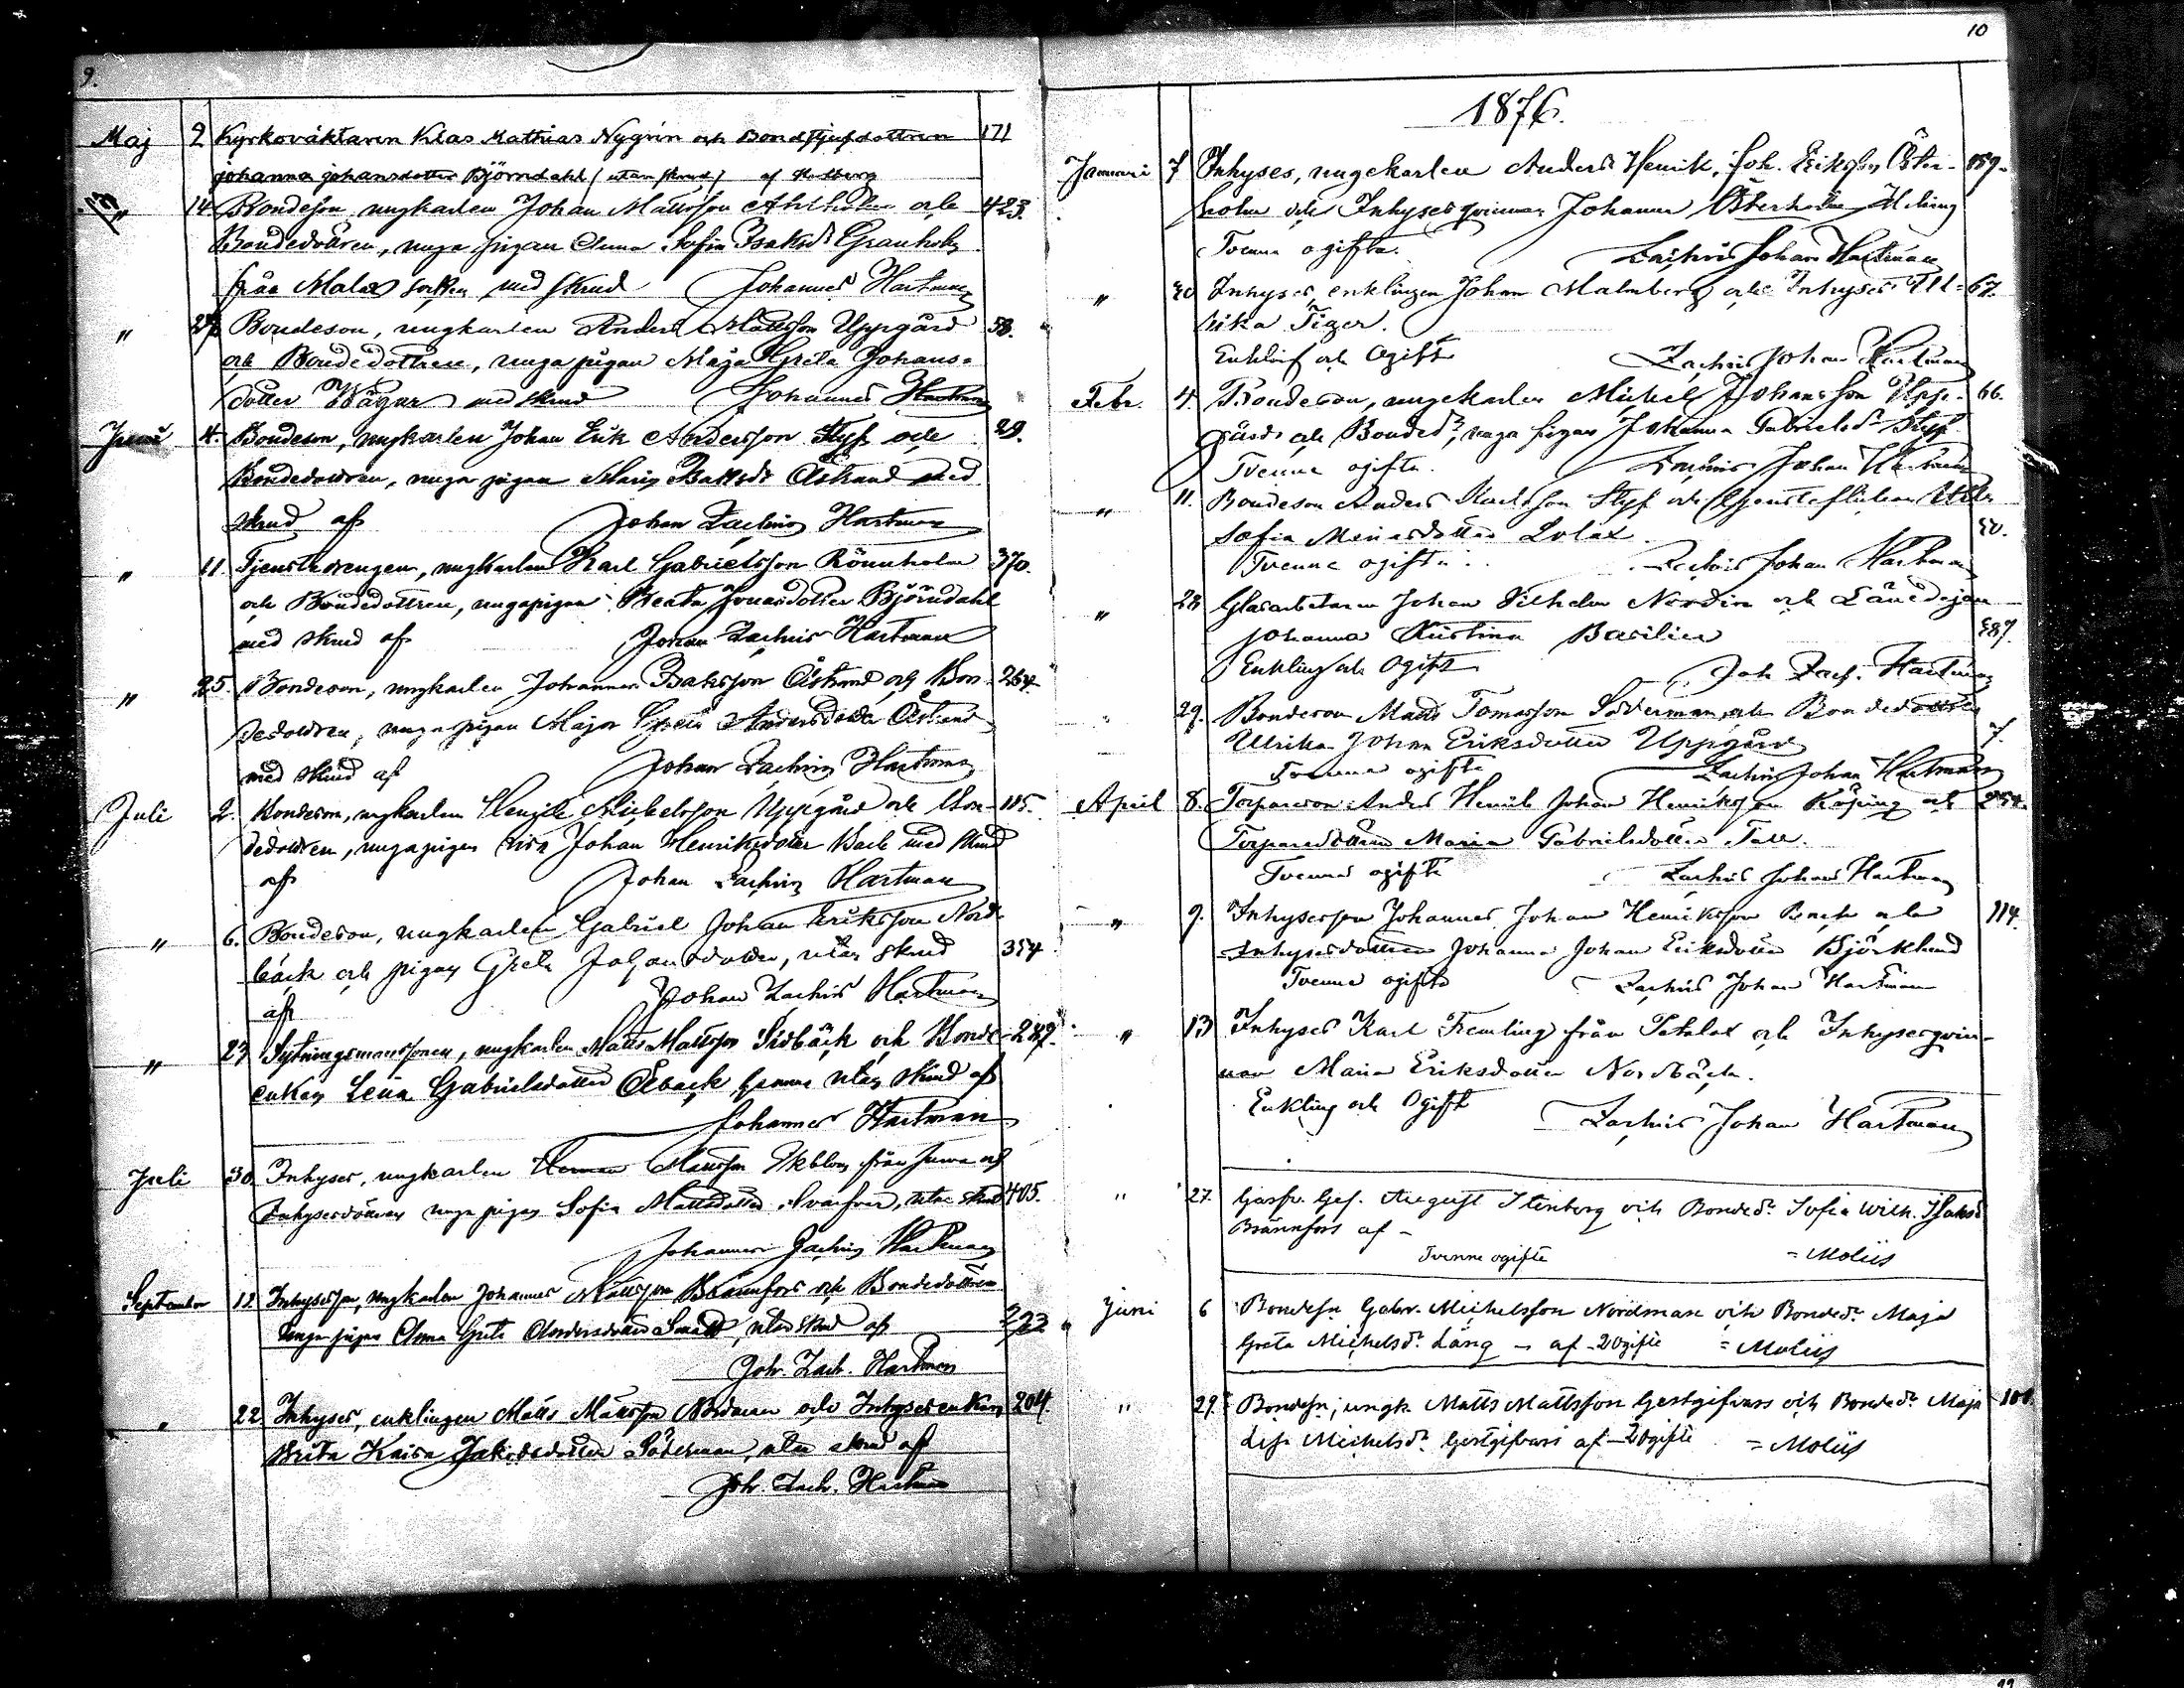 9.
Maj 2 Kyrkoväktaren Klas Mathias Nygrén och Bondstjufdottren 171
johanna johansdotter Björndahl (utan skrud) af Hallberg
" 14. Bondeson, ungkarlen Johan Mattsson och 423.
Bondedottren, unga pigan Anna Sofia Isaksdr Granholm
från Malax socken med skrud Johannes Hartman
" 27. Bondeson, ungkarlen Anders Mattsson Uppgård 58.
och Bondedottren, unga pigan Maja Greta Johans-
dotter Wägar med skrud Johannes Hartman
Juni 4. Bondeson, ungkarlen Johan Erik Andersson Styf och 29.
Bondedottren, unga pigan Maria Östrand med
skrud af Johan Zachris Hartman
" 11 Tjenstedrengen, ungkarlen Karl Gabrielsson Rönnholm 370.
och Bondedottren, unga pigan Beata Jonasdotter Björndahl
med skrud af Johan Zachris Hartman
" 25. Bondeson, ungkarlen Johannes Isaksson Östrand och Bon- 264
dedottren, unga pigan Maja Greta Andersdotter Östrand
med skrud af Johan Zachris Hartman
Juli 2. Bondeson, ungkarlen Henrik Michelsson Uppgård och Bon- 115.
dedottren, unga pigan Johan Henriksdotter Back med skrud
af Johan Zachris Hartman
" 6. Bondeson, ungkarlen Gabriel Johan Eriksson Nord-
bäck och pigan Greta Johansdotter, utan skrud 354
af Johan Zachris Hartman
" 23 Sytningsmanssonen, ungkarlen Matts Mattsson Sidbäck och Bonde- 249.
enkan Lena Gabrielsdotter utan skrud af
Johannes Hartman
Juli 30. Inhyses, ungkarlen Herman Mattsson Ekblom från och
Inhysesdottren unga pigan Sofia Mattsdotter utan skrud 405.
Johannes Zachris Hartman
September 12. Inhysesson, ungkarlen Johannes Mattsson Brännfors och Bondedottren
unga pigan Anna Greta Andersdotter Smått, utan skrud af 223
Joh. Zach. Hartman
" 22 Inhyses, enklingen Matts Mattsson Nordman och Inhysesenkan 204.
Brita Kaisa Jakobsdotter Söderman, utan skrud af
Joh. Zach. Hartman
10
1876.
Januari 7 Inhyses, ungkarlen Anders Henrik Joh. Eriksson Öster- 159.
holm och Inhysesqvinnan Johanna Österholm
Tvenne ogifta. Zachris Johan Hartman
" 30 Inhyses, enklingen Johan Malmberg och Inhyses Ul- 67.
rika Tiger.
Enkling och Ogift Zachris Johan Hartman
Febr. 4. Bondeson, ungkarlen Michel Johansson Upp- 66.
gård och Bonded:r, unga pigan Johanna Gabrielsd:r Styf
Tvenne ogifta. Zachris Johan Hartman
" 11. Bondeson Anders Karlsson Styf och Tjensteflickan
Sofia 50.
Tvenne ogifta. Zachris Johan Hartman
" 28 Glasarbetaren Johan Vilhelm Nordin och
Johanna Kristina Basilier 387.
Enkling och Ogift Joh. Zach. Hartman
" 29. Bondeson Matts Tomasson Söderman och Bondedottren
Ulrika Johan Eriksdotter Uppgård 7.
Tvenne ogifta Zachris Johan Hartman
April 8. Torpareson Anders Henrik Johan Henriksson Köping och 254.
Torparedottren Maria Gabrielsdotter Tall.
Tvenne ogifta Zachris Johan Hartman
" 9. Inhysesson Johannes Johan Henriksson och 114.
Inhysesdottren Johanna Johan Eriksdotter Björklund
Tvenne ogifta Zachris Johan Hartman
" 13 Inhyses Karl Fremling från Petalax och Inhysesqvin-
nan Maria Eriksdotter Nordbäck.
Enkling och Ogift Zachris Johan Hartman
" 27. August Stenberg och Bonded:r Sofia Wilh. Isaksd
Brännfors af –
Tvenne ogifte = Moliis
Juni 6 Bondesn Gabr. Michelsson Nordman och Bonded:r Maja
Greta Michelsd:r Lång – af – 2 Ogifte = Moliis
" 29. Bondesn, ungk. Matts Mattsson Gestgifvars och Bonded:r Maja 108.
Lisa Michelsd:r Gestgifvars af – 2 Ogifte = Moliis